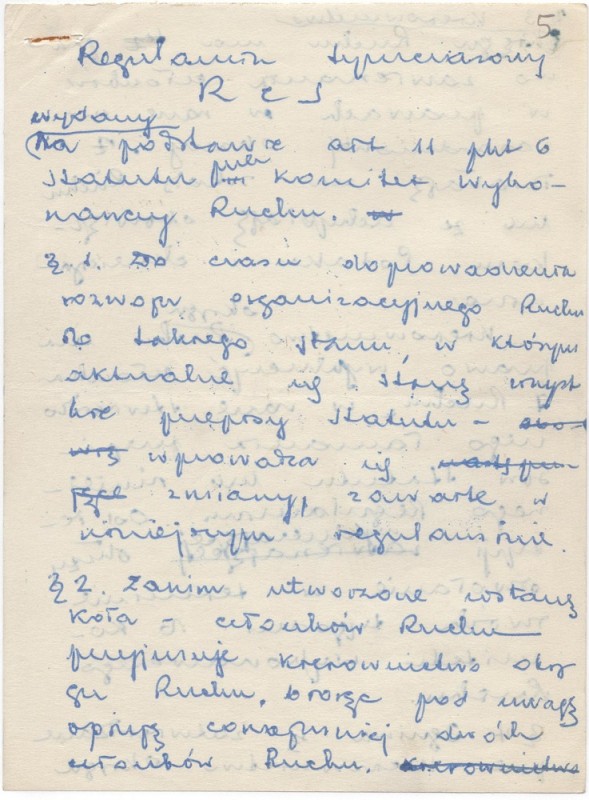 5.
Regulamin tymczasowy
R e J
wydany
Na podstawie art 11 pkt 6
statutu przez Komitet Wyko-
nawczy Ruchu.
§ 1. Do czasu doprowadzenia
rozwoju organizacyjnego Ruchu
do takiego stanu, w którym
aktualne się staną wszyst
kie przepisy statutu - obo-
wią wprowadza się następu-
jące zmiany, zawarte w
niniejszym regulaminie.
§ 2. Zanim utworzone zostaną
Koła - członków Ruchu
przyjmuje kierownictwo okrę
gu Ruchu, biorąc pod uwagę
opinję conajmniej dwóch
członków Ruchu. Kierownictwo